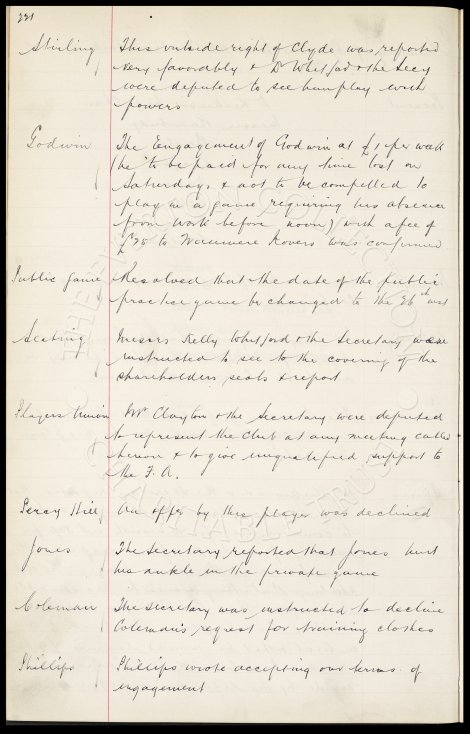 221
Stirling This outside right of Clyde was reported
very favorably & Dr Whitford & the Secy
were deputed to see him play with
powers
Godwin The Engagement of Godwin at £1 per week
(he to be paid for any time lost on
Saturdays & not to be compelled to
play in a game requiring his absence
from work before noon) with a fee of
to Rovers was confirmed
Public game Resolved that the date of the public
practice game be changed to the 26th inst
Seating Messrs Kelly Whitford & the Secretary were
instructed to see to the covering of the
shareholders seats & report
Players Union Mr Clayton & the Secretary were deputed
to represent the Club at any meeting called
hereon & to give unqualified support to
the F.A.
Percy Hill An offer by this player was declined
Jones The Secretary reported that Jones hurt
his ankle in the private game
Coleman The Secretary was instructed to decline
Coleman's request for training clothes
Phillips Phillips wrote accepting our terms of
engagement
CHARITABLE TRUST